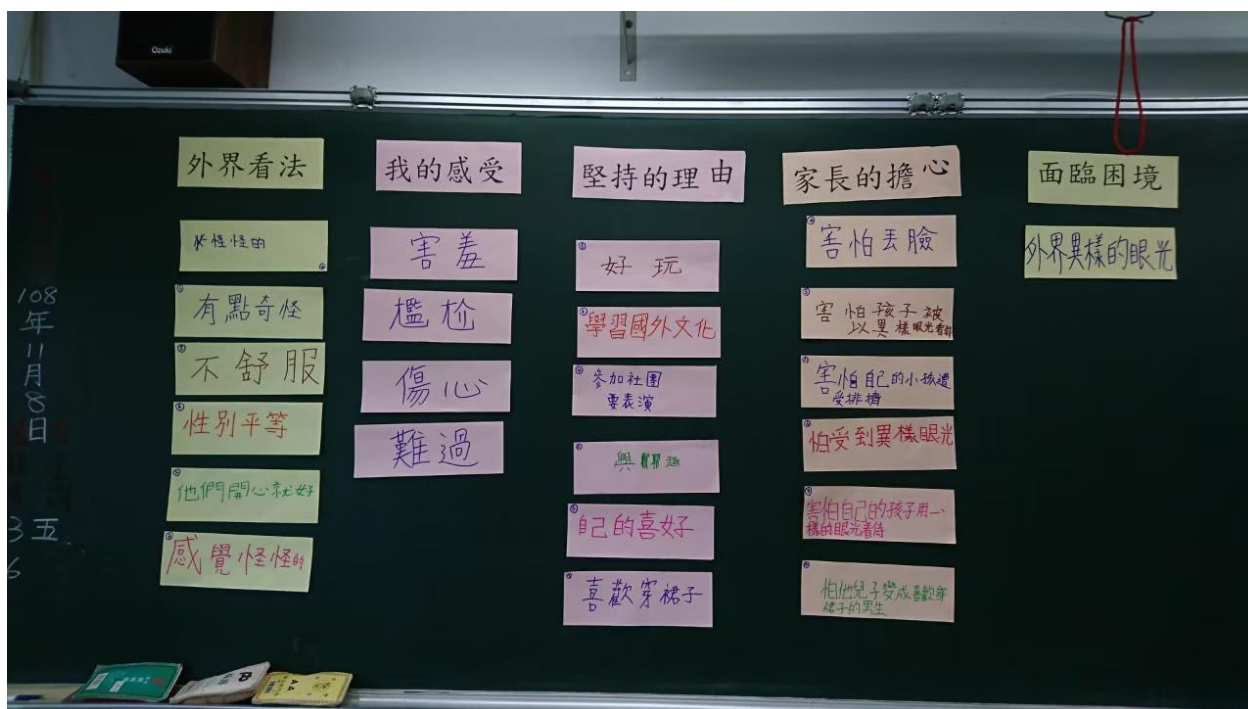 Ozuki
108
年
11
月
8
日
五
3
6
外界看法
怪怪的
有點奇怪
不舒服
性別平等
他們開心就好
感覺怪怪的
我的感受
害羞
尷尬
傷心
難過
堅持的理由
好玩
學習國外文化
參加社團
要表演
興趣
自己的喜好
喜歡穿裙子
家長的擔心
害怕丟臉
害怕孩子被
以異樣眼光看待
害怕自己的小孩遭
受排擠
怕受到異樣眼光
害怕自己的孩子用不一
樣的眼光看待
怕他兒子變成喜歡穿
裙子的男生
面臨困境
外界異樣的眼光
AA